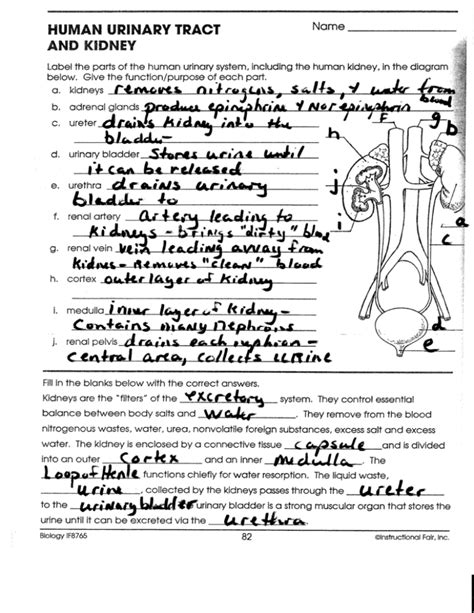 HUMAN URINARY TRACT Name
AND KIDNEY
Label the parts of the human urinary system, including the human kidney, in the diagram
below. Give the function/purpose of each part.
a. kidneys removes nitrogens, salts, & water from
blood
b. adrenal glands produce epinephrine & Norepinephrin
c. ureter drains kidney into the
bladder
d. urinary bladder Stores urine until
it can be released
e. urethra drains urinary
bladder to
f. renal artery artery leading to
kidneys - brings "dirty" blood
g. renal vein vein leading away from
kidneys - removes "clean" blood
h. cortex outer layer of kidney
i. medulla inner layer of kidney -
contains many nephrons
j. renal pelvis drains each nephron -
central area, collects urine
F
g
b
h
j
i
a
c
d
e
Fill in the blanks below with the correct answers.
Kidneys are the "filters" of the excretory system. They control essential
balance between body salts and water. They remove from the blood
nitrogenous wastes, water, urea, nonvolatile foreign substances, excess salt and excess
water. The kidney is enclosed by a connective tissue capsule and is divided
into an outer Cortex and an inner Medulla. The
Loop of Henle functions chiefly for water resorption. The liquid waste,
urine, collected by the kidneys passes through the ureter
to the urinary bladder urinary bladder is a strong muscular organ that stores the
urine until it can be excreted via the urethra.
Biology IF8765 82 ©Instructional Fair, Inc.